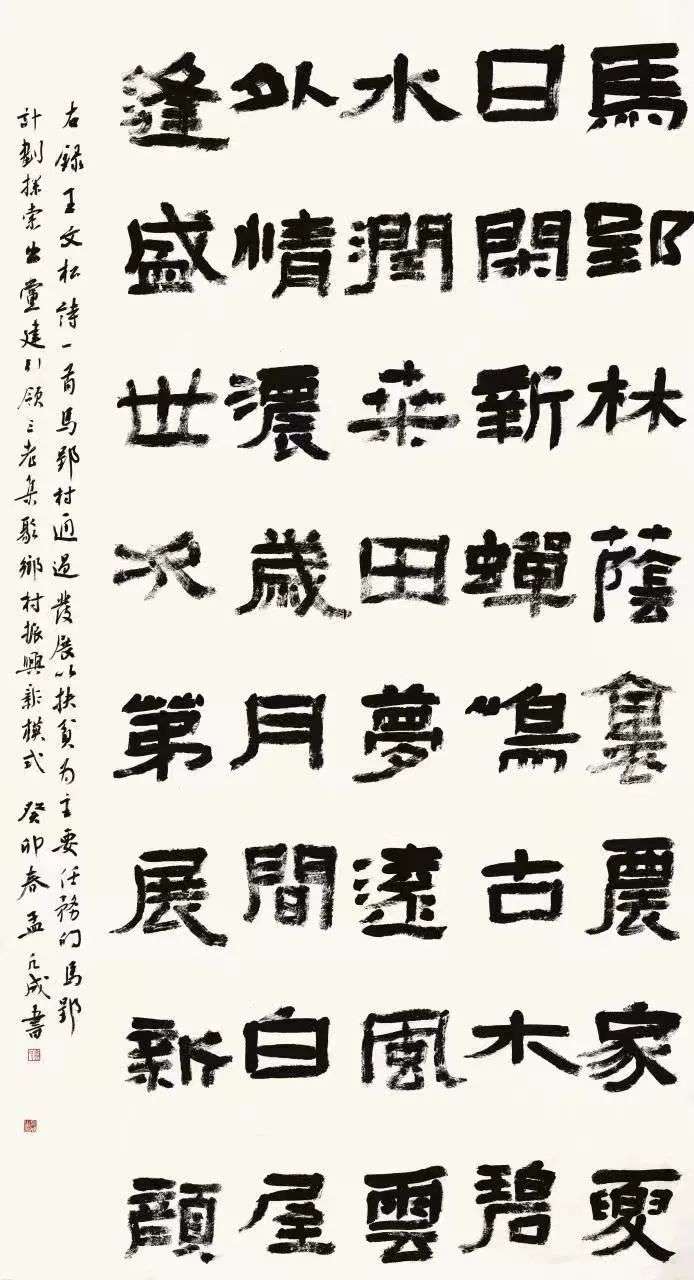 馬郢林蔭裏農家夏
日閑新蟬鳴古木碧
水潤桒田夢遠風雲
外情濃歲月間白屋
逢盛世次第展新顏
右錄王文松詩一首馬郢村通過發展以扶貧為主要任務的馬郢
計劃探索出黨建引領三老集聚鄉村振興新模式 癸卯春孟凡成書